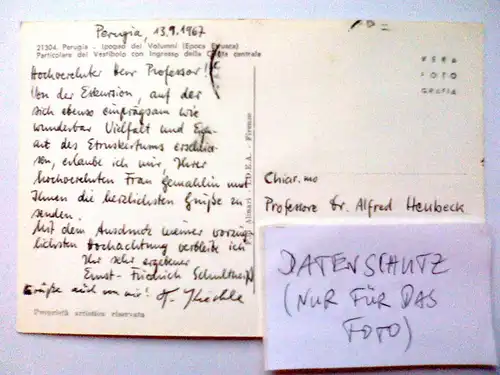 Perugia, 13.9.1967
21304. Perugia - Ipogeo dei Volumni (Epoca Etrusca)
Particolare del Vestibolo con Ingresso della Cella centrale
Hochverehrter Herr Professor!
Von der Exkursion, auf der
sich ebenso einprägsam wie
wunderbar Vielfalt und Eigen-
art des Etruskertums erschlos-
sen, erlaube ich mir, Ihrer
hochverehrten Frau Gemahlin und
Ihnen die herzlichsten Grüße zu
senden.
Mit dem Ausdruck meiner vorzüg-
lichsten Hochachtung verbleibe ich
Ihr sehr ergebener
Ernst-Friedrich Schultheiß
Grüße auch von mir!
Proprietà artistica riservata
Alinari I.D.E.A. - Firenze
VERA
FOTO
GRAFIA
Chiar.mo
Professore Dr. Alfred Heubeck
DATENSCHUTZ
(NUR FÜR DAS
FOTO)